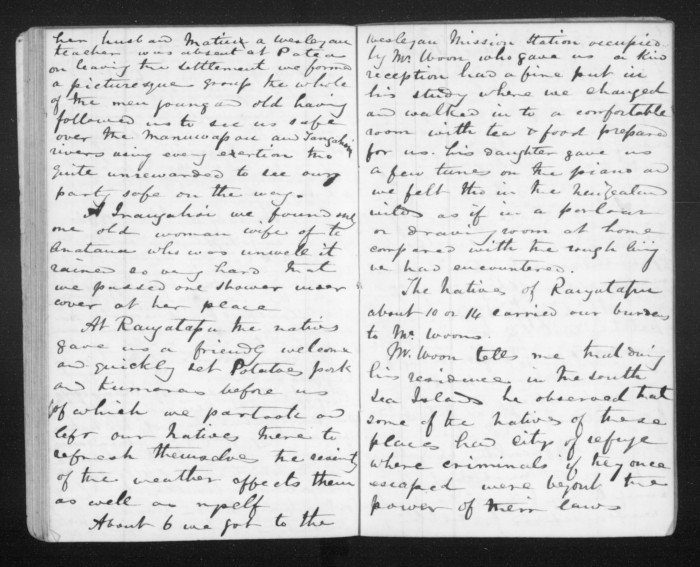 her husband Matiu a Wesleyan
teacher was absent at Patea
on leaving the settlement we formed
a picturesque group the whole
of the men young and old having
followed us to see us safe
over the Manuwapou and
rivers using every exertion tho
quite unrewarded to see our
party safe on the way.
A we found only
one old woman wife of te
Anatana who was unwell it
rained so very hard that
we passed one shower under
cover at her place
At Rangatapu the natives
gave us a friendly welcome
and quickly set Potatoes pork
and kumeras before us
of which we partook and
left our Natives there to
refresh themselves the severity
of the weather affects them
as well as myself
About 6 we got to the
Wesleyan Mission Station occupied
by Mr Woon who gave us a kind
reception had a fine put in
his study where we changed
and walked in to a comfortable
room with tea & food prepared
for us. his daughter gave us
a few tunes on the piano and
we felt tho in the New Zealand
wilds as if in a parlour
or drawing room at home
compared with the rough living
we had encountered.
The Natives of Rangatapu
about 10 or 14 carried our burdens
to Mr Woons.
Mr. Woon tells me that during
his residence in the South
Sea Islands he observed that
some of the natives of these
places had citys of refuge
where criminals if they once
escaped were beyond the
power of their laws